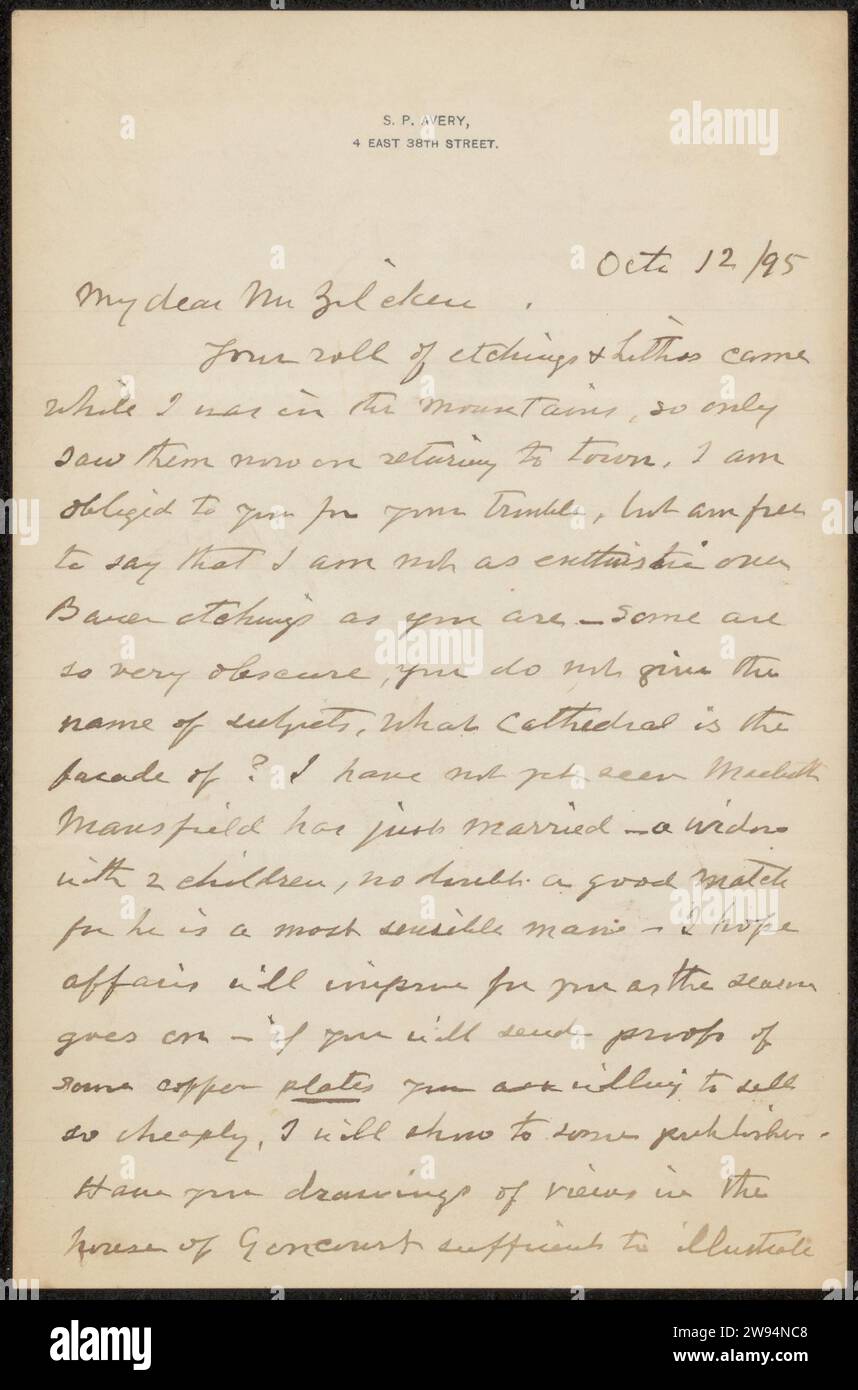 S. P. AVERY,
4 EAST 38TH STREET.
Octr 12/95
My dear Mr Zilcken.
Your roll of etchings & Lithos came
while I was in the mountains, so only
saw them now on returing to town. I am
obliged to you for your trouble, but am free
to say that I am not as over
Bauer etchings as you are - some are
so very obscure, you do not give the
name of subjects, what Cathedral is the
facade of? I have not yet seen Macbeth
Mansfield has just married - a widow
with 2 children, no doubt a good match
for he is a most sensible man - I hope
affairs will improve for you as the season
goes on - if you will send proofs of
some copper plates you are willing to sell
so cheaply, I will show to some publisher.
Have you drawings of views in the
house of Goncourt sufficient to illustrate
alamy
alamy
Image ID: 2W94NC8
www.alamy.com